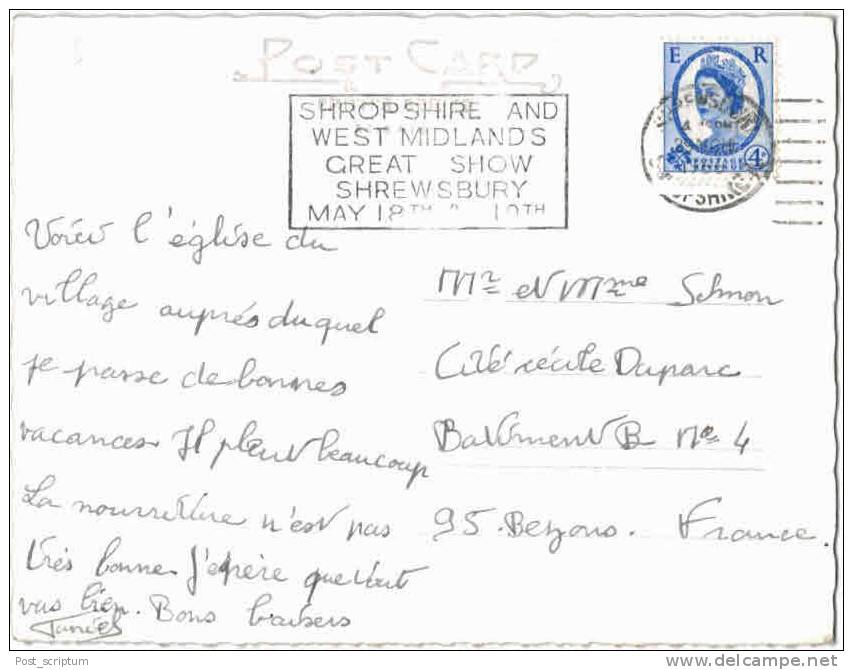 POST CARD
E R
SHROPSHIRE AND
WEST MIDLANDS
GREAT SHOW
SHREWSBURY
MAY 18TH 19TH
POSTAGE
REVENUE
4D
SHROPSHIRE
Voici l'église du
village auprés duquel
je passe de bonnes
vacances Il pleut beaucoup
La nourriture n'est pas
très bonne J'espère que tout
vas bien. Bons baisers
Mr et Mme
Cité cécile Duparc
Batiment B No 4
95. Bezons. France.
Post_scriptum
www.delcampe.net